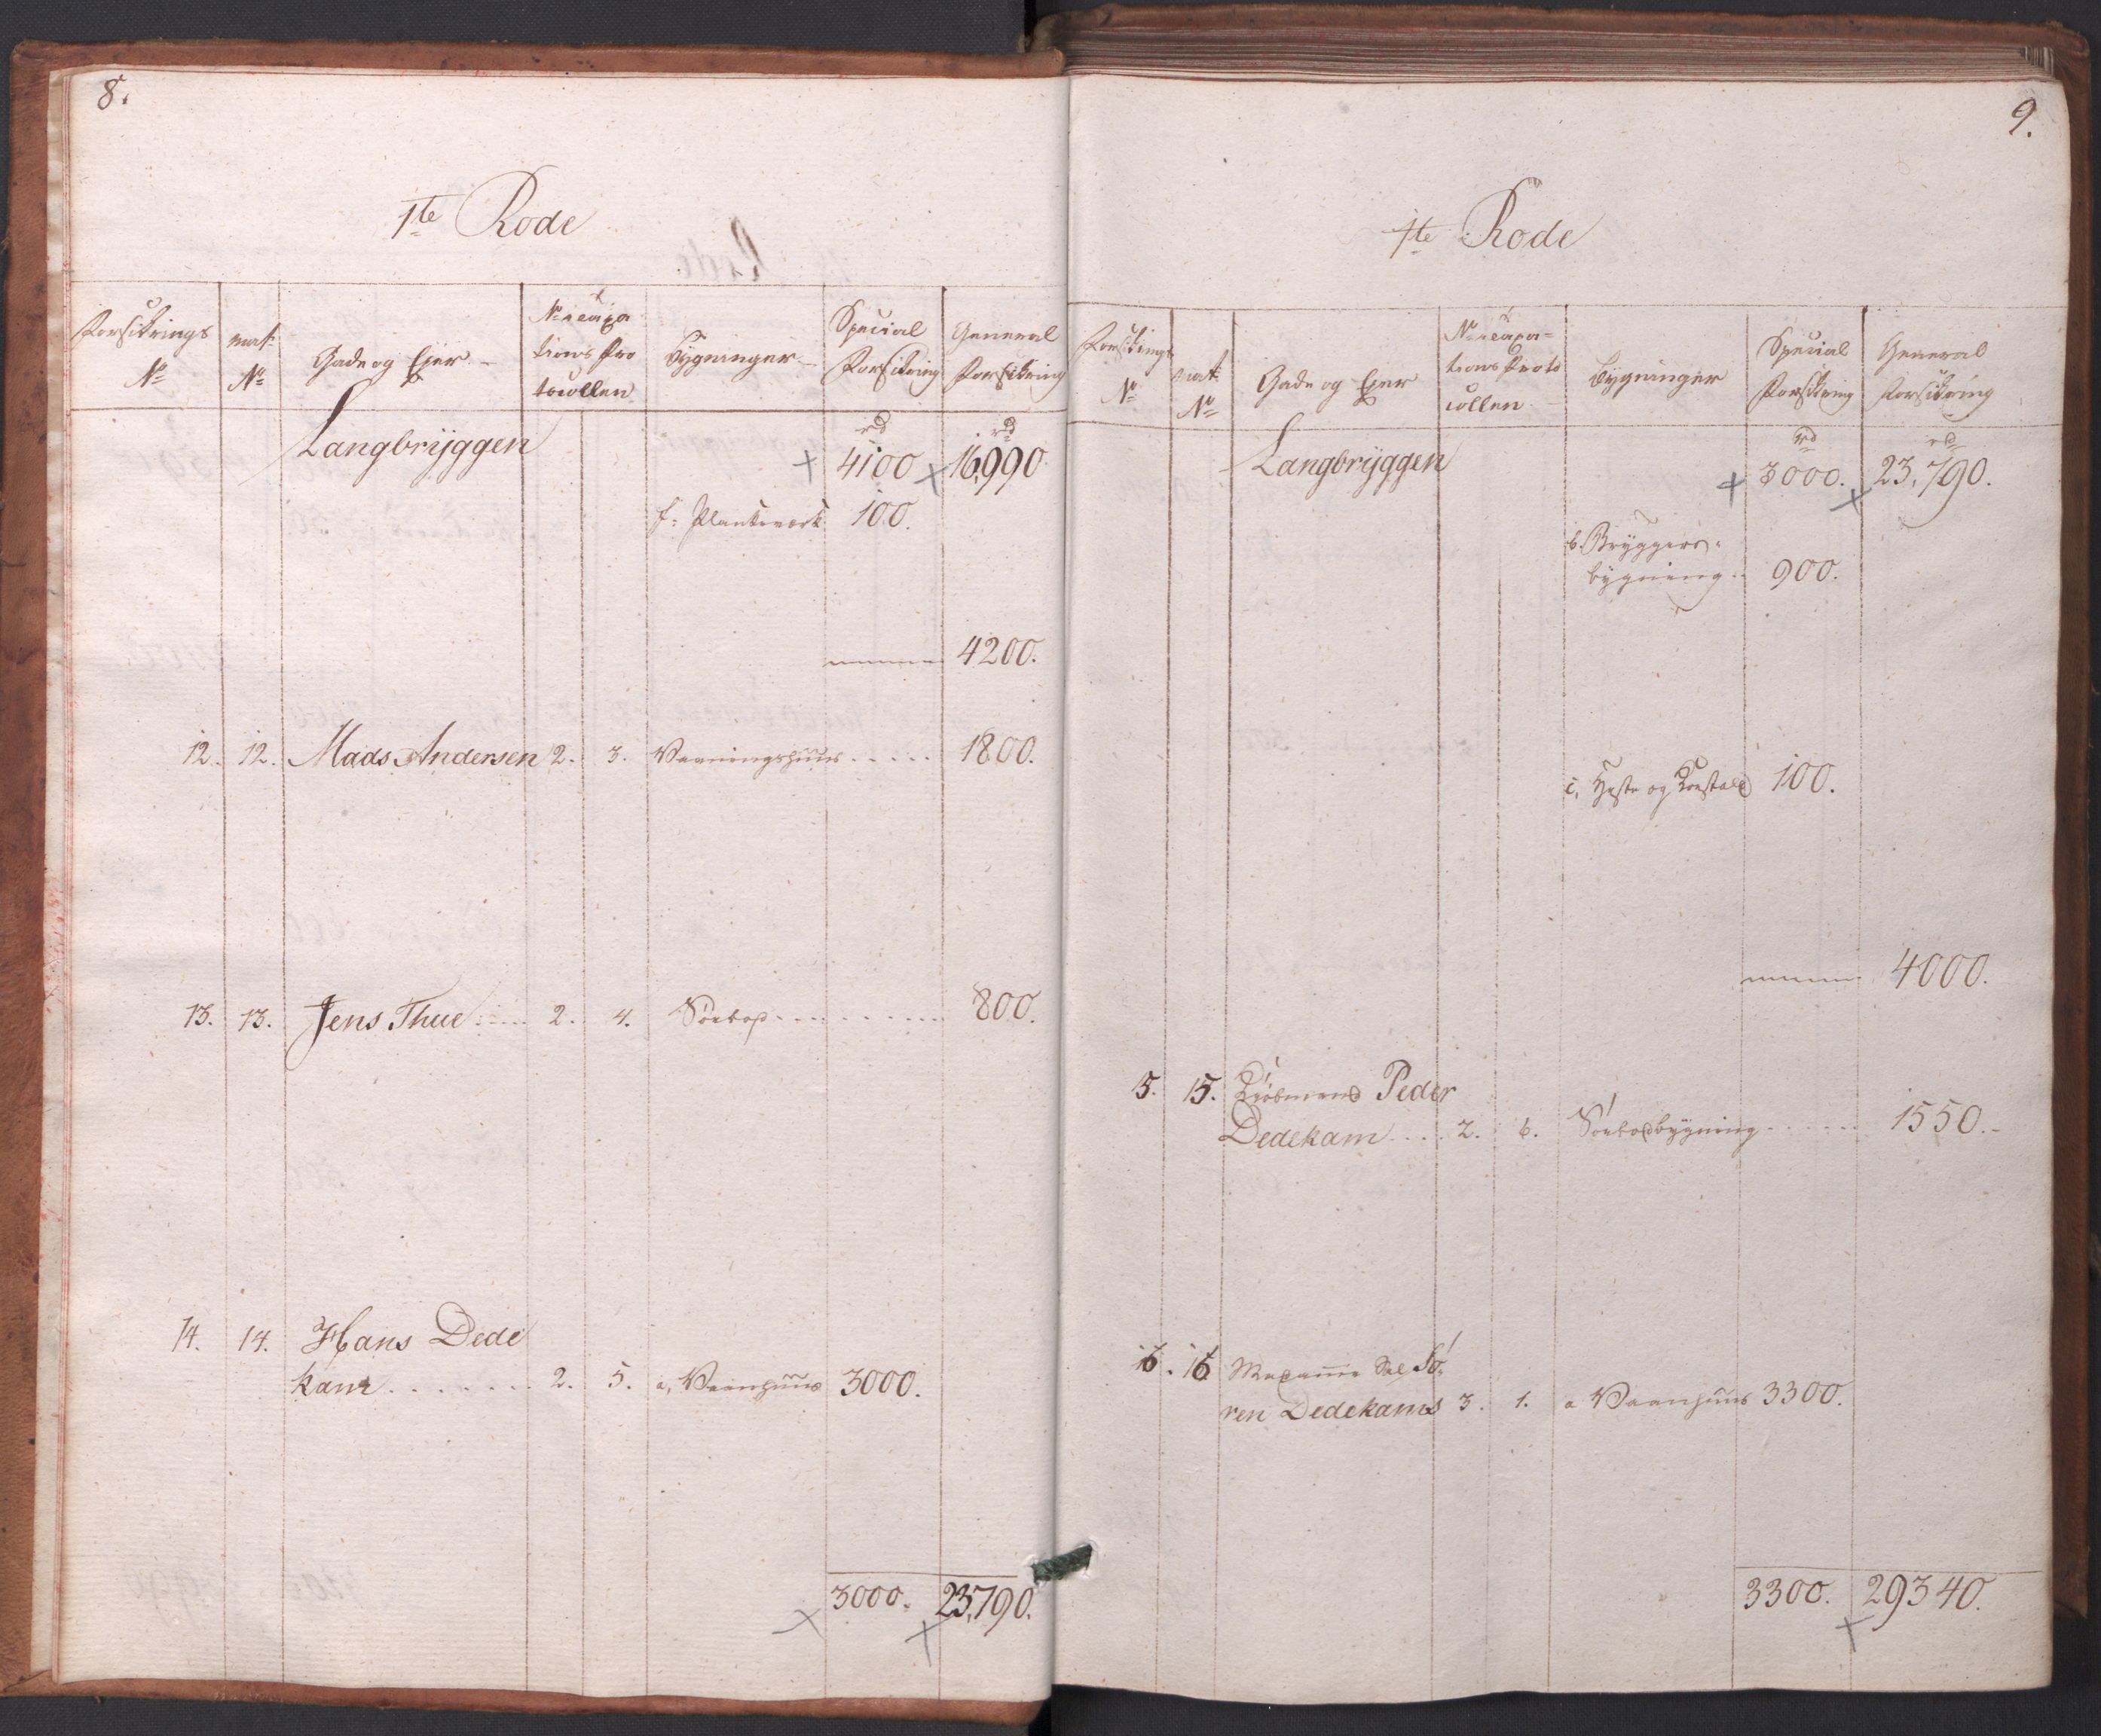 8.
1te Rode
Forsikrings
No
mat:
No
Gade og Ejer
No i Taxa
tions Pro
tocollen
Bygninger
Special
Forsikring
General
Forsikring
Langbryggen
rd
4100
rd
16,990
f: Plankeværk 100.
4200.
12. 12. Mads Andersen 2. 3. Vaaningshuus ..... 1800.
13. 13. Jens Thue ..... 2. 4. Søebod ......... 800.
14. 14. Hans Dede
kam ....... 2. 5. a, Vaanhuus 3000.
3000. 23,790.
9.
1te Rode
Forsikrings
No
mat
No
Gade og Ejer
No i Taxa=
tions Proto
collen
Bygninger
Special
Forsikring
General
Forsikring
Langbryggen
rd
3000.
rd
23,790.
b. Bryggers-
bygning .. 900.
c, Heste og Koestald 100.
4000.
15. 15. Kiøbmand Peder
Dedekam .... 2. 6. Søebodbygning ...... 1550.-
16. 16 Madame Sal Sø
ren Dedekams 3. 1. a Vaanhuus 3300.
3300. 29340.